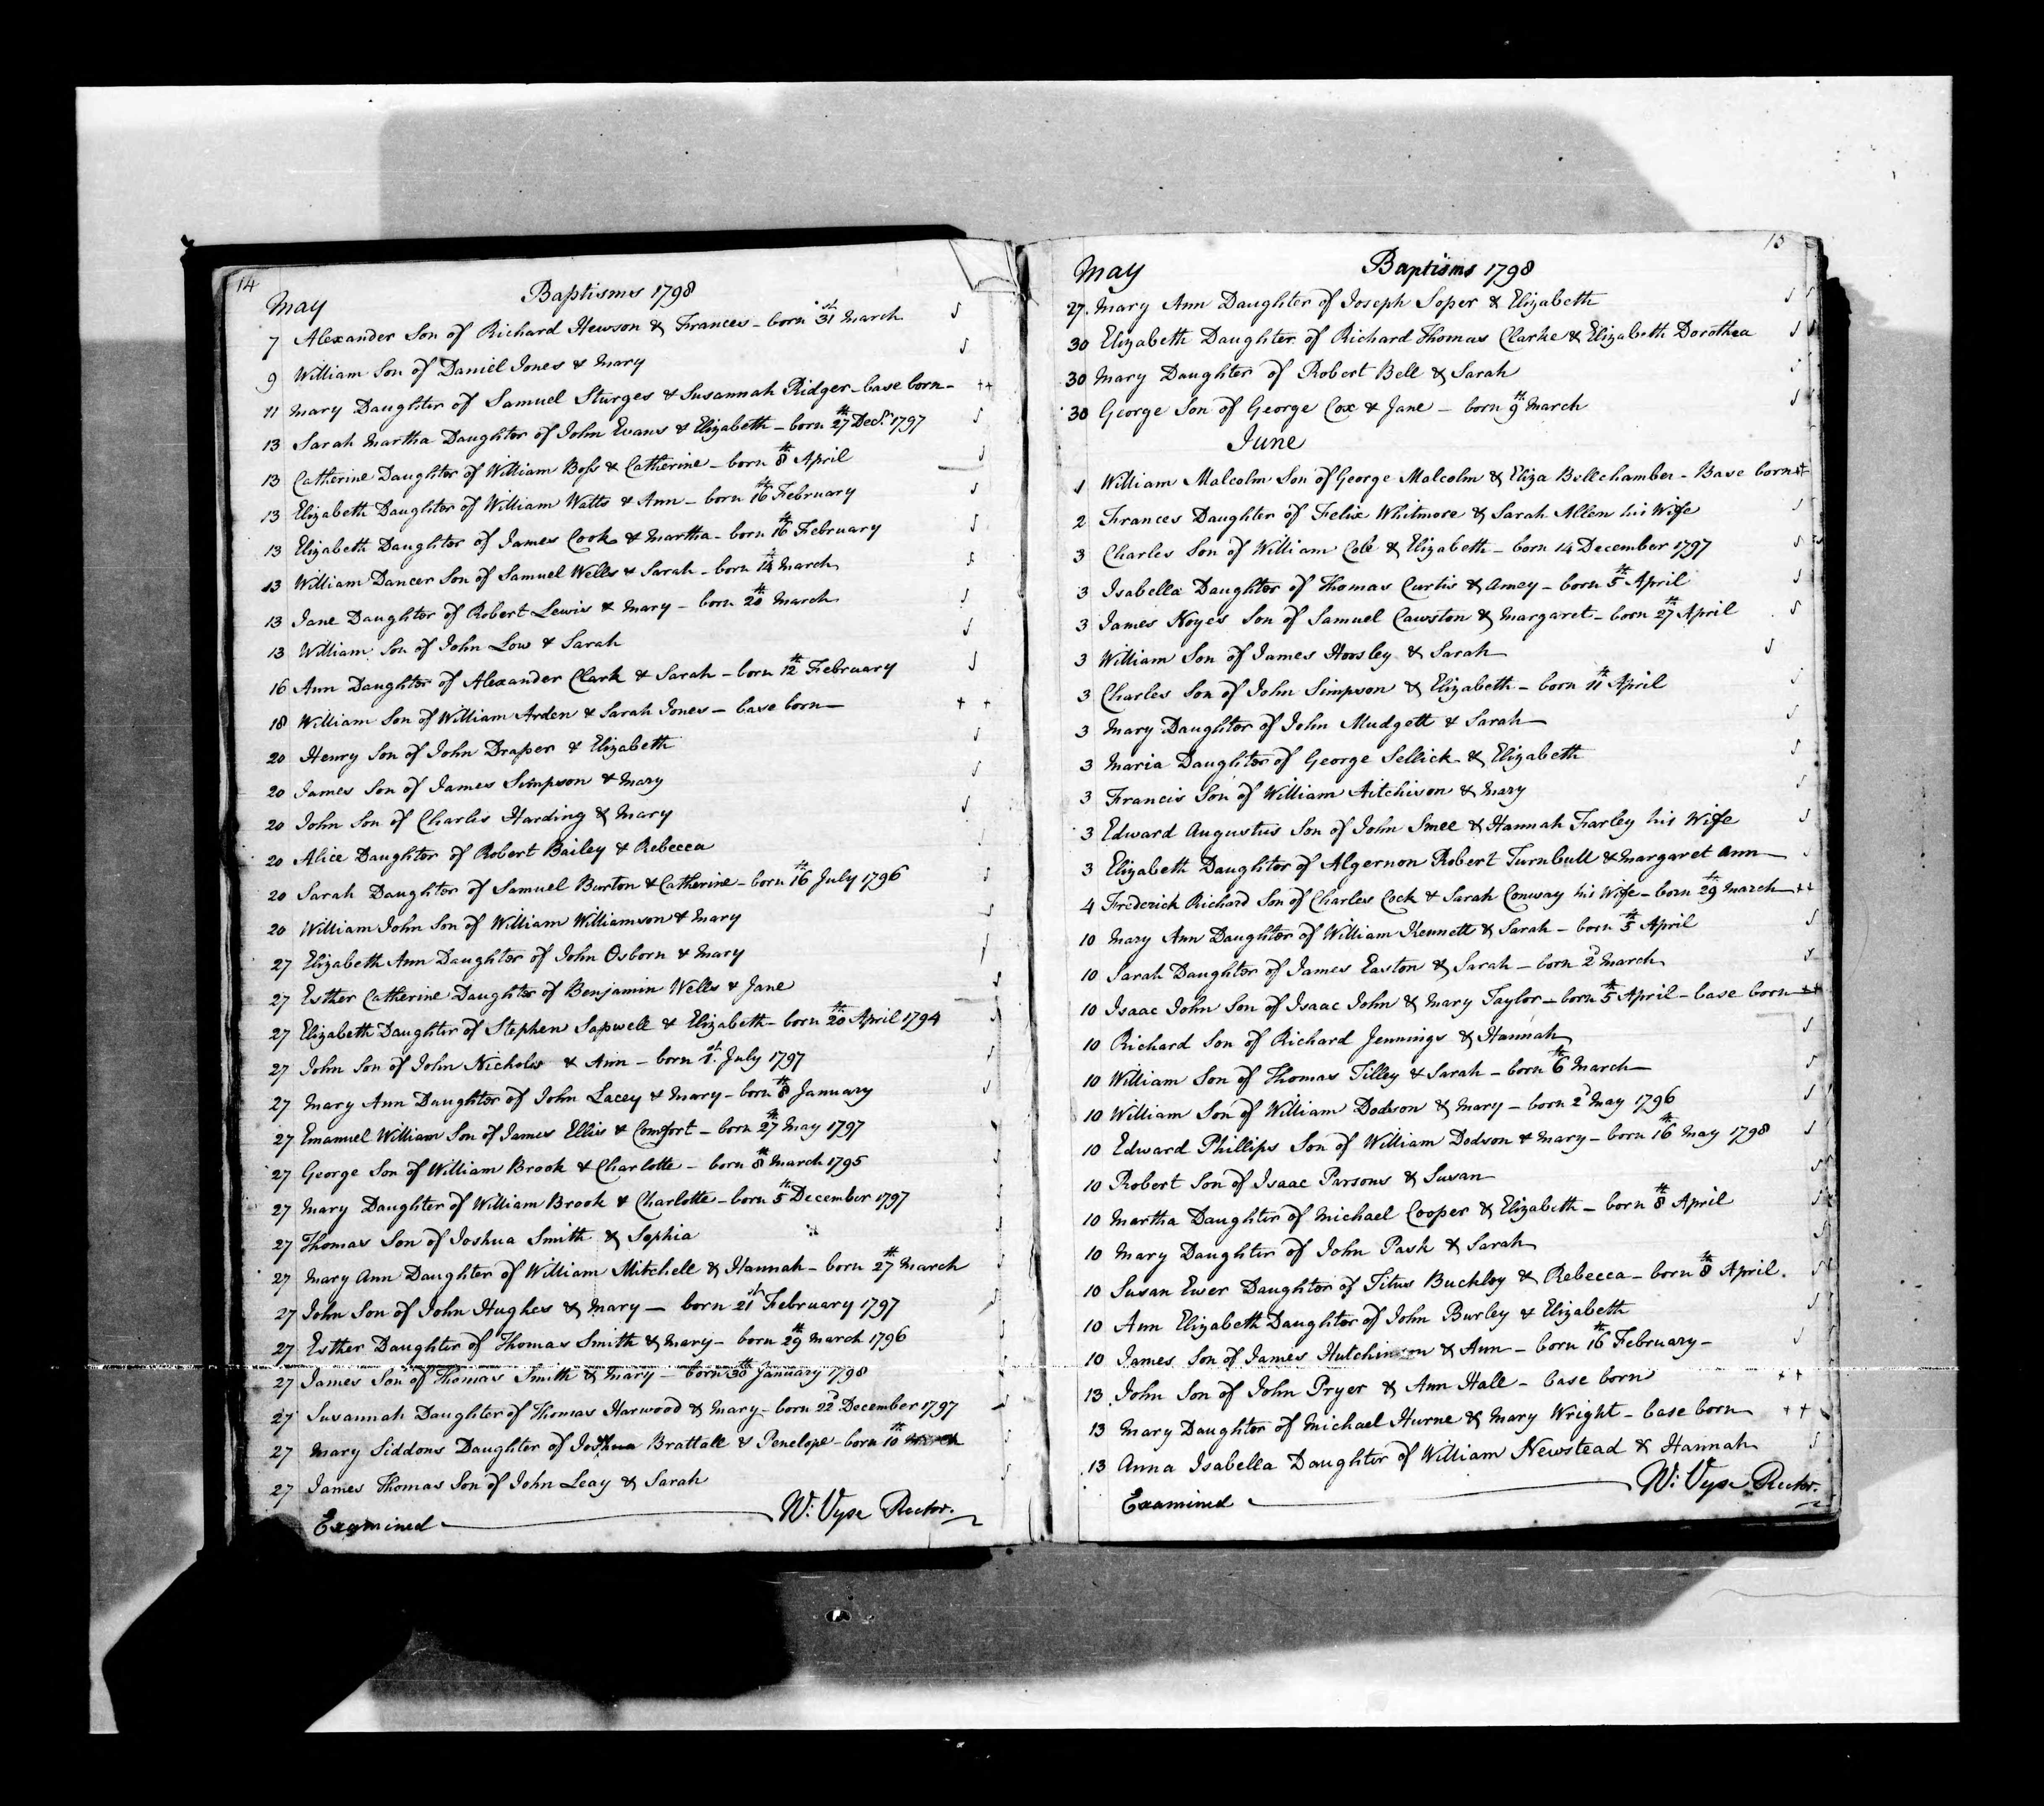 14
Baptisms 1798
May
7 Alexander Son of Richard Hewson & Frances - born 31st March
9 William Son of Daniel Jones & Mary
11 Mary Daughter of Samuel Sturges & Susannah Ridger - base born - ++
13 Sarah Martha Daughter of John Evans & Elizabeth - born 27th Decr. 1797
13 Catherine Daughter of William Boss & Catherine - born 8th April
13 Elizabeth Daughter of William Watts & Ann - born 16th February
13 Elizabeth Daughter of James Cook & Martha - born 16th February
13 William Dancer Son of Samuel Wells & Sarah - born 14th March
13 Jane Daughter of Robert Lewis & Mary - born 20th March
13 William Son of John Low & Sarah
16 Ann Daughter of Alexander Clark & Sarah - born 12th February
18 William Son of William Arden & Sarah Jones - base born - + +
20 Henry Son of John Draper & Elizabeth
20 James Son of James Simpson & Mary
20 John Son of Charles Harding & Mary
20 Alice Daughter of Robert Bailey & Rebecca
20 Sarah Daughter of Samuel Burton & Catherine - born 16th July 1796
20 William John Son of William Williamson & Mary
27 Elizabeth Ann Daughter of John Osborn & Mary
27 Esther Catherine Daughter of Benjamin Wells & Jane
27 Elizabeth Daughter of Stephen Sapwell & Elizabeth - born 20th April 1794
27 John Son of John Nicholls & Ann - born 1st. July 1797
27 Mary Ann Daughter of John Lacey & Mary - born 8th January
27 Emanuel William Son of James Ellis & Comfort - born 27th May 1797
27 George Son of William Brook & Charlotte - born 8th March 1795
27 Mary Daughter of William Brook & Charlotte - born 5th December 1797
27 Thomas Son of Joshua Smith & Sophia
27 Mary Ann Daughter of William Mitchell & Hannah - born 27th March
27 John Son of John Hughes & Mary - born 21st February 1797
27 Esther Daughter of Thomas Smith & Mary - born 29th March 1796
27 James Son of Thomas Smith & Mary - born 30th January 1798
27 Susannah Daughter of Thomas Harwood & Mary - born 22d December 1797
27 Mary Siddons Daughter of Joshua Brattall & Penelope - born 10th March
27 James Thomas Son of John Leay & Sarah
Examined W: Vyse Rector.
15
May Baptisms 1798
27. Mary Ann Daughter of Joseph Soper & Elizabeth
30 Elizabeth Daughter of Richard Thomas Clarke & Elizabeth Dorothea
30 Mary Daughter of Robert Bell & Sarah
30 George Son of George Cox & Jane - born 9th March
June
1 William Malcolm Son of George Malcolm & Eliza Bellchamber - Base born ++
2 Frances Daughter of Felix Whitmore & Sarah Allen his Wife
3 Charles Son of William Cole & Elizabeth - born 14 December 1797
3 Isabella Daughter of Thomas Curtis & Amey - born 5th April
3 James Noyes Son of Samuel Cawston & Margaret - born 27th April
3 William Son of James Horsley & Sarah
3 Charles Son of John Simpson & Elizabeth - born 11th April
3 Mary Daughter of John Mudgett & Sarah
3 Maria Daughter of George Sellick & Elizabeth
3 Francis Son of William Aitchison & Mary
3 Edward Augustus Son of John Smee & Hannah Farley his Wife
3 Elizabeth Daughter of Algernon Robert Turnbull & Margaret Ann
4 Frederick Richard Son of Charles Cock & Sarah Conway his Wife - born 29th March ++
10 Mary Ann Daughter of William Kennett & Sarah - born 5th April
10 Sarah Daughter of James Easton & Sarah - born 2d March
10 Isaac John Son of Isaac John & Mary Taylor - born 5th April - base born ++
10 Richard Son of Richard Jennings & Hannah
10 William Son of Thomas Tilley & Sarah - born 6th March
10 William Son of William Dodson & Mary - born 2d May 1796
10 Edward Phillips Son of William Dodson & Mary - born 16th May 1798
10 Robert Son of Isaac Parsons & Susan
10 Martha Daughter of Michael Cooper & Elizabeth - born 8th April
10 Mary Daughter of John Pask & Sarah
10 Susan Ewer Daughter of Titus Buckley & Rebecca - born 8th April.
10 Ann Elizabeth Daughter of John Burley & Elizabeth
10 James Son of James Hutchinson & Ann - born 16th February -
13 John Son of John Pryer & Ann Hall - base born ++
13 Mary Daughter of Michael Hurne & Mary Wright - base born ++
13 Anna Isabella Daughter of William Newstead & Hannah
Examined W: Vyse Rector.